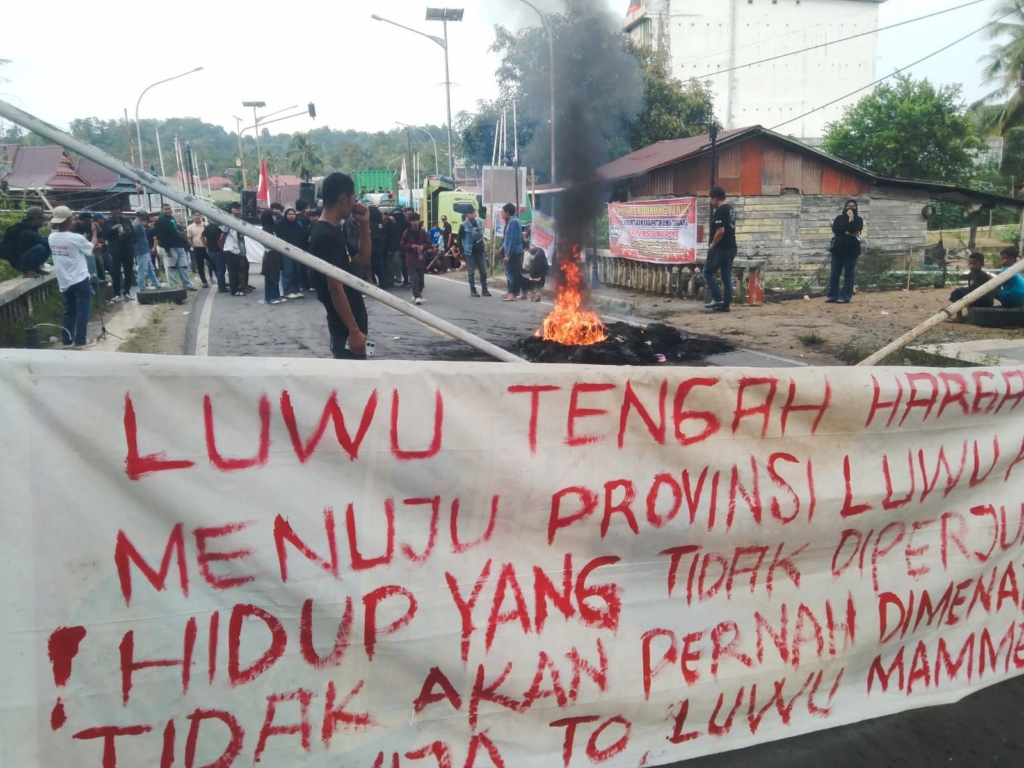 LUWU TENGAH HARGA
MENUJU PROVINSI LUWU
! HIDUP YANG TIDAK DIPERJU
TIDAK AKAN PERNAH DIMENA
TO, LUWU MAMME